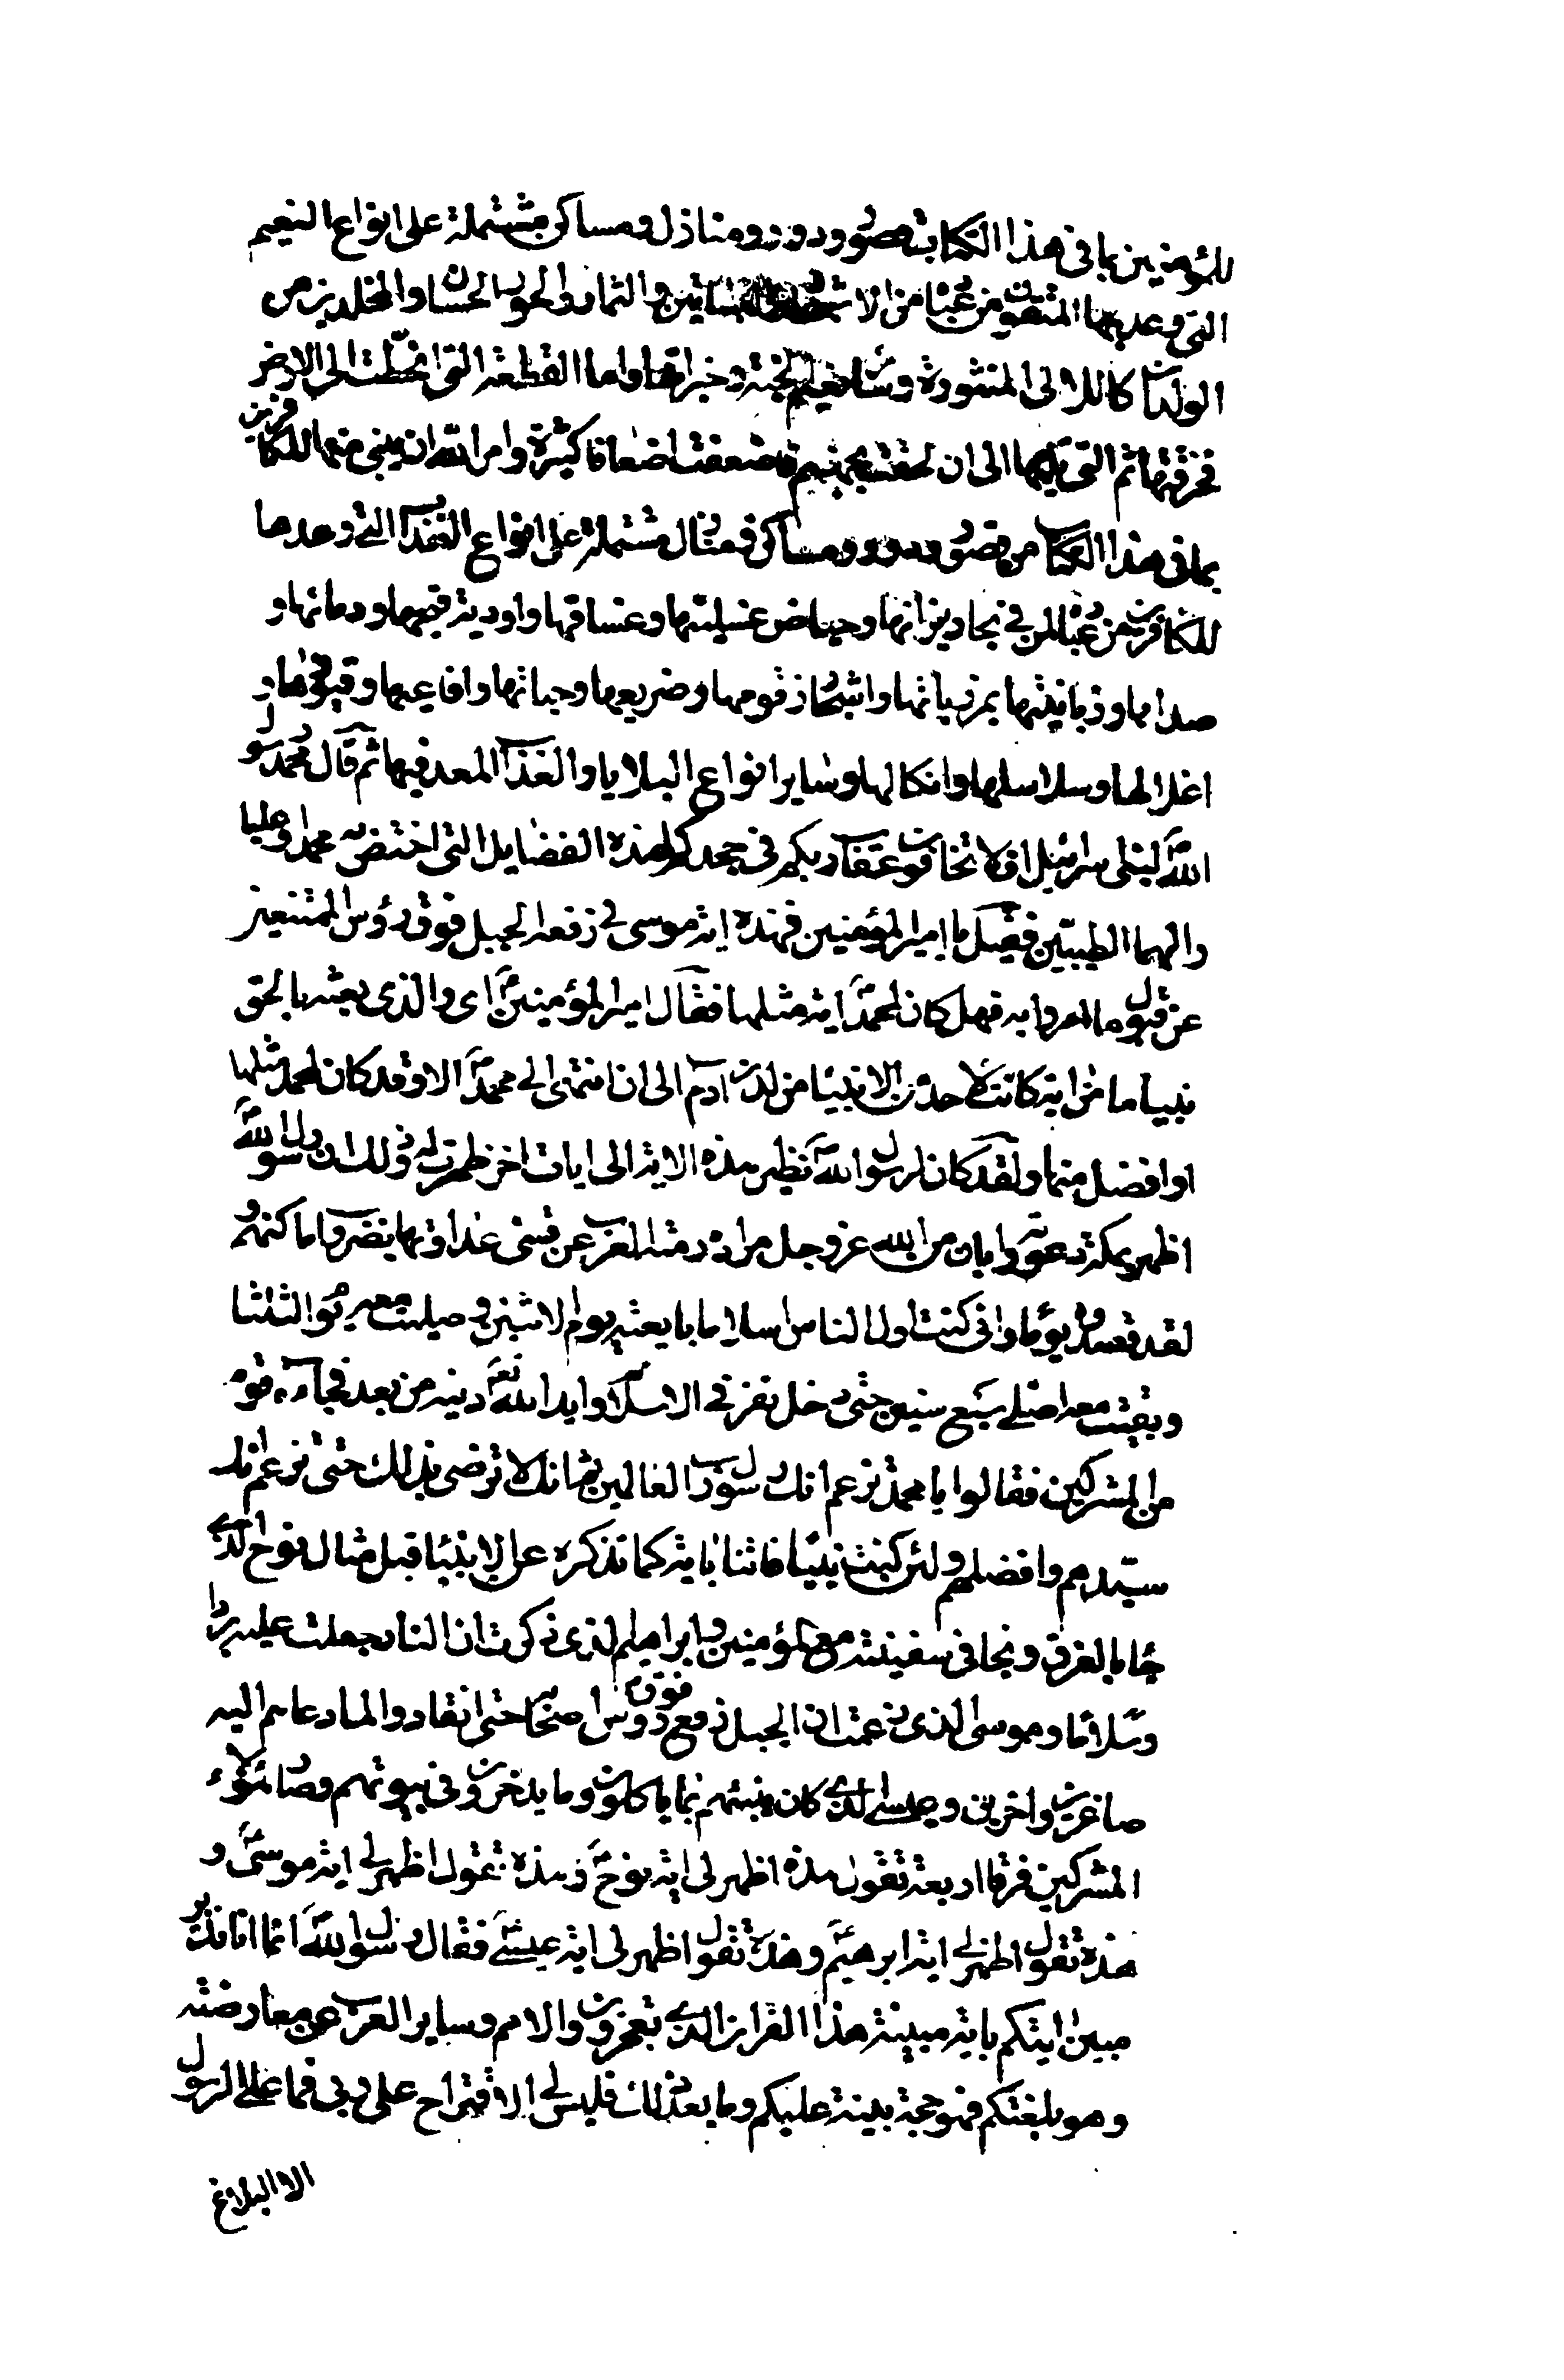 للمؤمنين بما في هذا الكتاب قصور ودور ومنازل ومساكن مشتملة على انواع النعيم
التي وعد بها المتقون من عباد من الاشجار والبساتين والثمار والحور الحسان والمخلدين من
الولدان كاللالى المنثورة وساير نعيم الجنة وخيراتها واما القطعة التي انحطت الى الارض
فخرقتها ثم التي تليها الى ان لحقت بجهنم فاضعفت اضعافا كثيرة وامر الله ان يبنى منها للكافرين
بما في هذا الكتاب من قصور ودور ومساكن ومنازل مشتملة على انواع العذاب التي وعدها
للكافرين من عباده من بحار نيرانها وحياض غسلينها وغساقها واودية قيحها ودمائها و
صديدها وزبانيتها بمرزباتها واشجار زقومها وضريعها وحياتها وافاعيها وقيودها و
اغلالها وسلاسلها وانكالها وساير انواع البلايا والعذاب المعد فيها ثم قال محمد رسول
الله لبني اسرائيل افلا تخافون عقاب ربكم في جحدكم لهذه الفضايل التي اختص بها محمدا وعليا
والهما الطيبين فقيل يا امير المؤمنين فهذه اية موسى في رفعه الجبل فوق رؤس الممتنعين
عن قبول ما امروا به فهل كان لمحمد اية مثلها فقال امير المؤمنين اى والذى بعثه بالحق
نبيا ما من اية كانت لاحد من الانبيا من لدن ادم الى ان انتهى الى محمد الا وقد كان لمحمد مثلها
او افضل منها ولقد كان لرسول الله نظير هذه الاية الى ايات اخر ظهرت له وذلك ان رسول الله
اظهر بمكة دعوته وابان من الله عز وجل مراده رمته العرب عن قسى عداوتها بضروب امكانهم و
لقد قصدته يوما وانى كنت اول الناس اسلاما بايعته يوم الاثنين وصليت معه يوم الثلثا
وبقيت معه اصلى سبع سنين حتى دخل نفر في الاسلام وايد الله دينه من بعد فجاءه قوم
من المشركين فقالوا يا محمد تزعم انك رسول رب العالمين ثم انك لا ترضى بذلك حتى تزعم انك
سيدهم وافضلهم ولئن كنت نبيا فاتنا باية كما تذكره عن الانبيا قبل مثال نوح الذى
جا بالغرق ونجا في سفينته مع المؤمنين وابراهيم الذى ذكرت ان النار جعلت عليه بردا
وسلاما وموسى الذى زعمت ان الجبل رفع فوق رؤس اصحابه حتى انقادوا لما دعاهم اليه
صاغرين داخرين وعيسى الذى كان ينبئهم بما ياكلون وما يدخرون في بيوتهم وصار هؤلاء
المشركين فرقا اربعة تقول هذه اظهر لى اية نوح وهذه تقول اظهر لى اية موسى و
هذه تقول اظهر لى اية ابرهيم وهذه تقول اظهر لى اية عيسى فقال رسول الله انما انا نذير
مبين اتيتكم باية مبينة هذا القران الذى تعجزون والامم وساير العرب عن معارضته
وهو بلغتكم فهو حجة بينة عليكم وما بعد ذلك فليس لى الاقتراح على ربى فما على الرسول
الا البلاغ